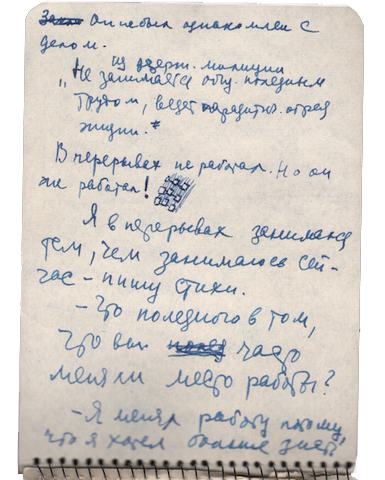 Он не был ознакомлен с
делом.
из задерж. милиции
„Не занимается общ. полезным
трудом, ведет паразитич. образ
жизни."
В перерывах не работал. Но он
же работал!
Я в перерывах занимался
тем, чем занимаюсь сей-
час – пишу стихи.
– Что полезного в том,
что вы часто
меняли место работы?
– Я менял работу потому,
что я хотел больше знать